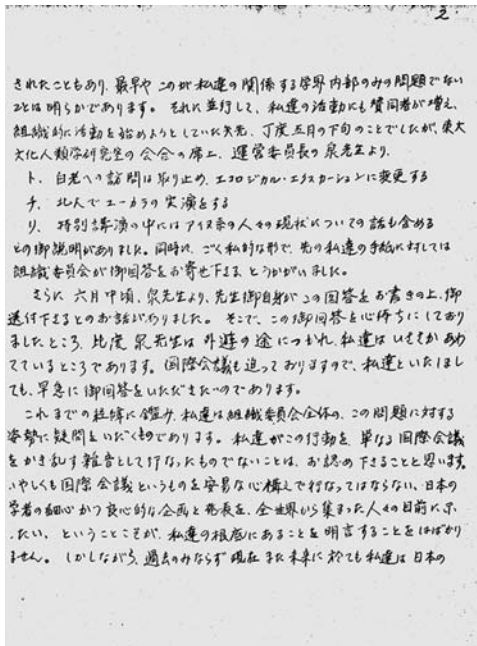 2.
されたこともあり、最早やこのが私達の関係する学界内部のみの問題でない
ことは明らかであります。それに並行して、私達の活動にも賛同者が増え、
組織的に活動を始めようとしていた矢先、丁度五月の下旬のことでしたが、東大
文化人類学研究室の会合の席上、運営委員長の泉先生より、
ト、白老への訪問は取り止め、エコロジカル・エクスカーションに変更する
チ、北大でユーカラの実演をする
リ、特別講演の中にはアイヌ系の人々の現状についての話も含める
との御説明がありました。同時に、ごく私的な形で、先の私達の手紙に対しては
組織委員会が御回答をお寄せ下さる、とうかがいました。
さらに六月中頃、泉先生より、先生御自身がこの回答をお書きの上、御
送付下さるとのお話がありました。そこで、この御回答を心待ちにしており
ましたところ、此度泉先生は外遊の途につかれ、私達はいささかあわ
てているところであります。国際会議も迫っておりますので、私達といたしまし
ても、早急に御回答をいただきたいのであります。
これまでの経緯に鑑み、私達は組織委員会全体の、この問題に対する
姿勢に疑問をいだくものであります。私達がこの行動を、単なる国際会議
をかき乱す雑音として行なったものでないことは、お認め下さることと思います。
いやしくも国際会議というものを安易な心構えで行なってはならない、日本の
学者の細心かつ良心的な企画と発表を、全世界から集まった人々の目前に示
したい、ということこそが、私達の根底にあることを明言することをはばかり
ません。しかしながら、過去のみならず現在また未来に於ても私達は日本の